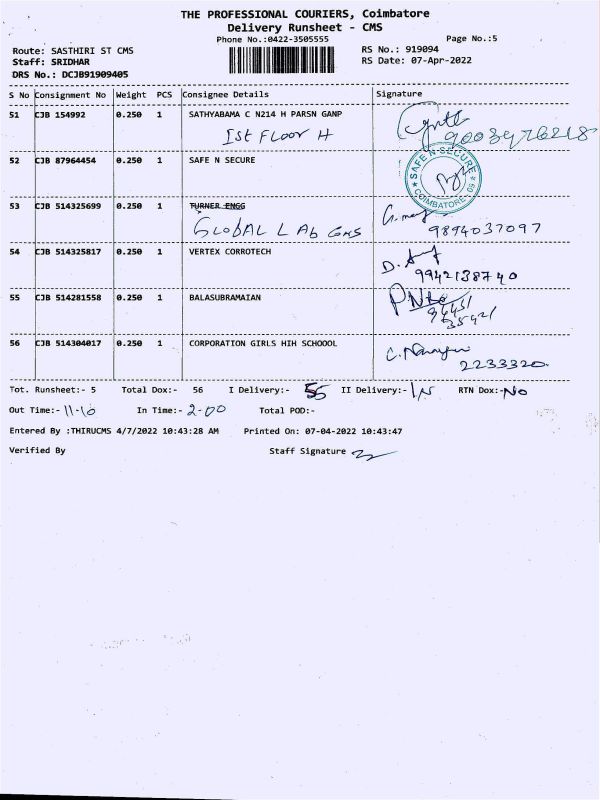 THE PROFESSIONAL COURIERS, Coimbatore
Delivery Runsheet - CMS
Phone No.:0422-3505555
Page No.:5
Route: SASTHIRI ST CMS
RS No.: 919094
Staff: SRIDHAR
RS Date: 07-Apr-2022
DRS No.: DCJB91909405
S No Consignment No Weight PCS Consignee Details Signature
51 CJB 154992 0.250 1 SATHYABAMA C N214 H PARSN GANP
Ist FLOOR H
52 CJB 87964454 0.250 1 SAFE N SECURE
SAFE N SECURE
COIMBATORE
53 CJB 514325699 0.250 1 TURNER ENGG
GLObAL LAb
9894037097
54 CJB 514325817 0.250 1 VERTEX CORROTECH
9942138740
55 CJB 514281558 0.250 1 BALASUBRAMAIAN
56 CJB 514304017 0.250 1 CORPORATION GIRLS HIH SCHOOOL
2233320
Tot. Runsheet:- 5 Total Dox:- 56 I Delivery:- 55 II Delivery:- RTN Dox:- No
Out Time:- 11-10 In Time:- 2-00 Total POD:-
Entered By :THIRUCMS 4/7/2022 10:43:28 AM Printed On: 07-04-2022 10:43:47
Verified By Staff Signature